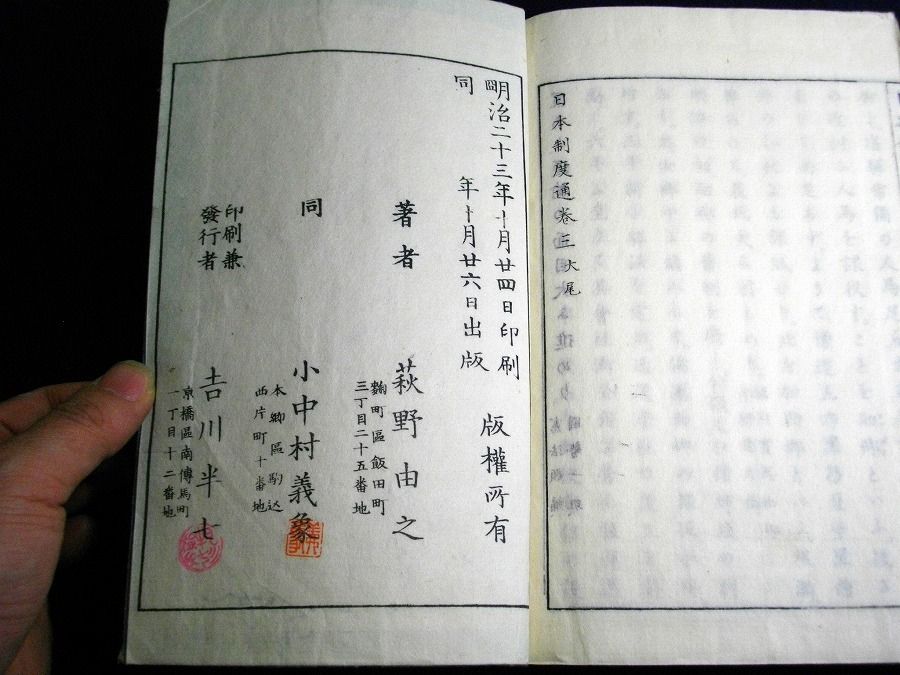 日本制度通卷三大尾
明治二十三年十月廿四日印刷
同年十月廿六日出版
版權所有
著者
萩野由之
麴町區飯田町
三丁目二十五番地
同
小中村義象
本鄕區駒込
西片町十番地
印刷兼
發行者
吉川半七
京橋區南傳馬町
一丁目十二番地